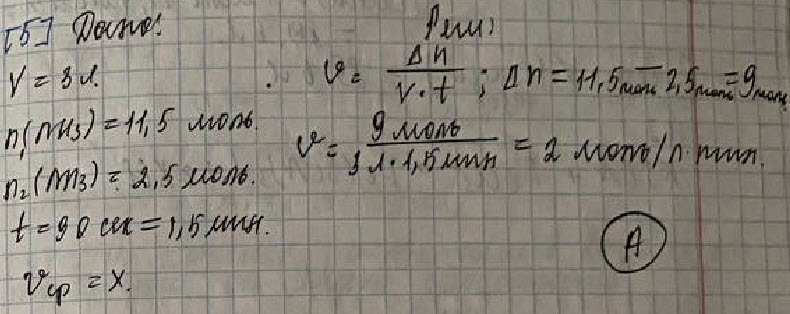 [5] Дано:
V = 3 л.
n₁(NH₃) = 11,5 моль.
n₂(NH₃) = 2,5 моль.
t = 90 сек = 1,5 мин.
υср = X.
Реш:
υ = Δn / V·t ; Δn = 11,5моль − 2,5моль = 9моль
υ = 9 моль / 3 л·1,5мин = 2 моль/л·мин.
А